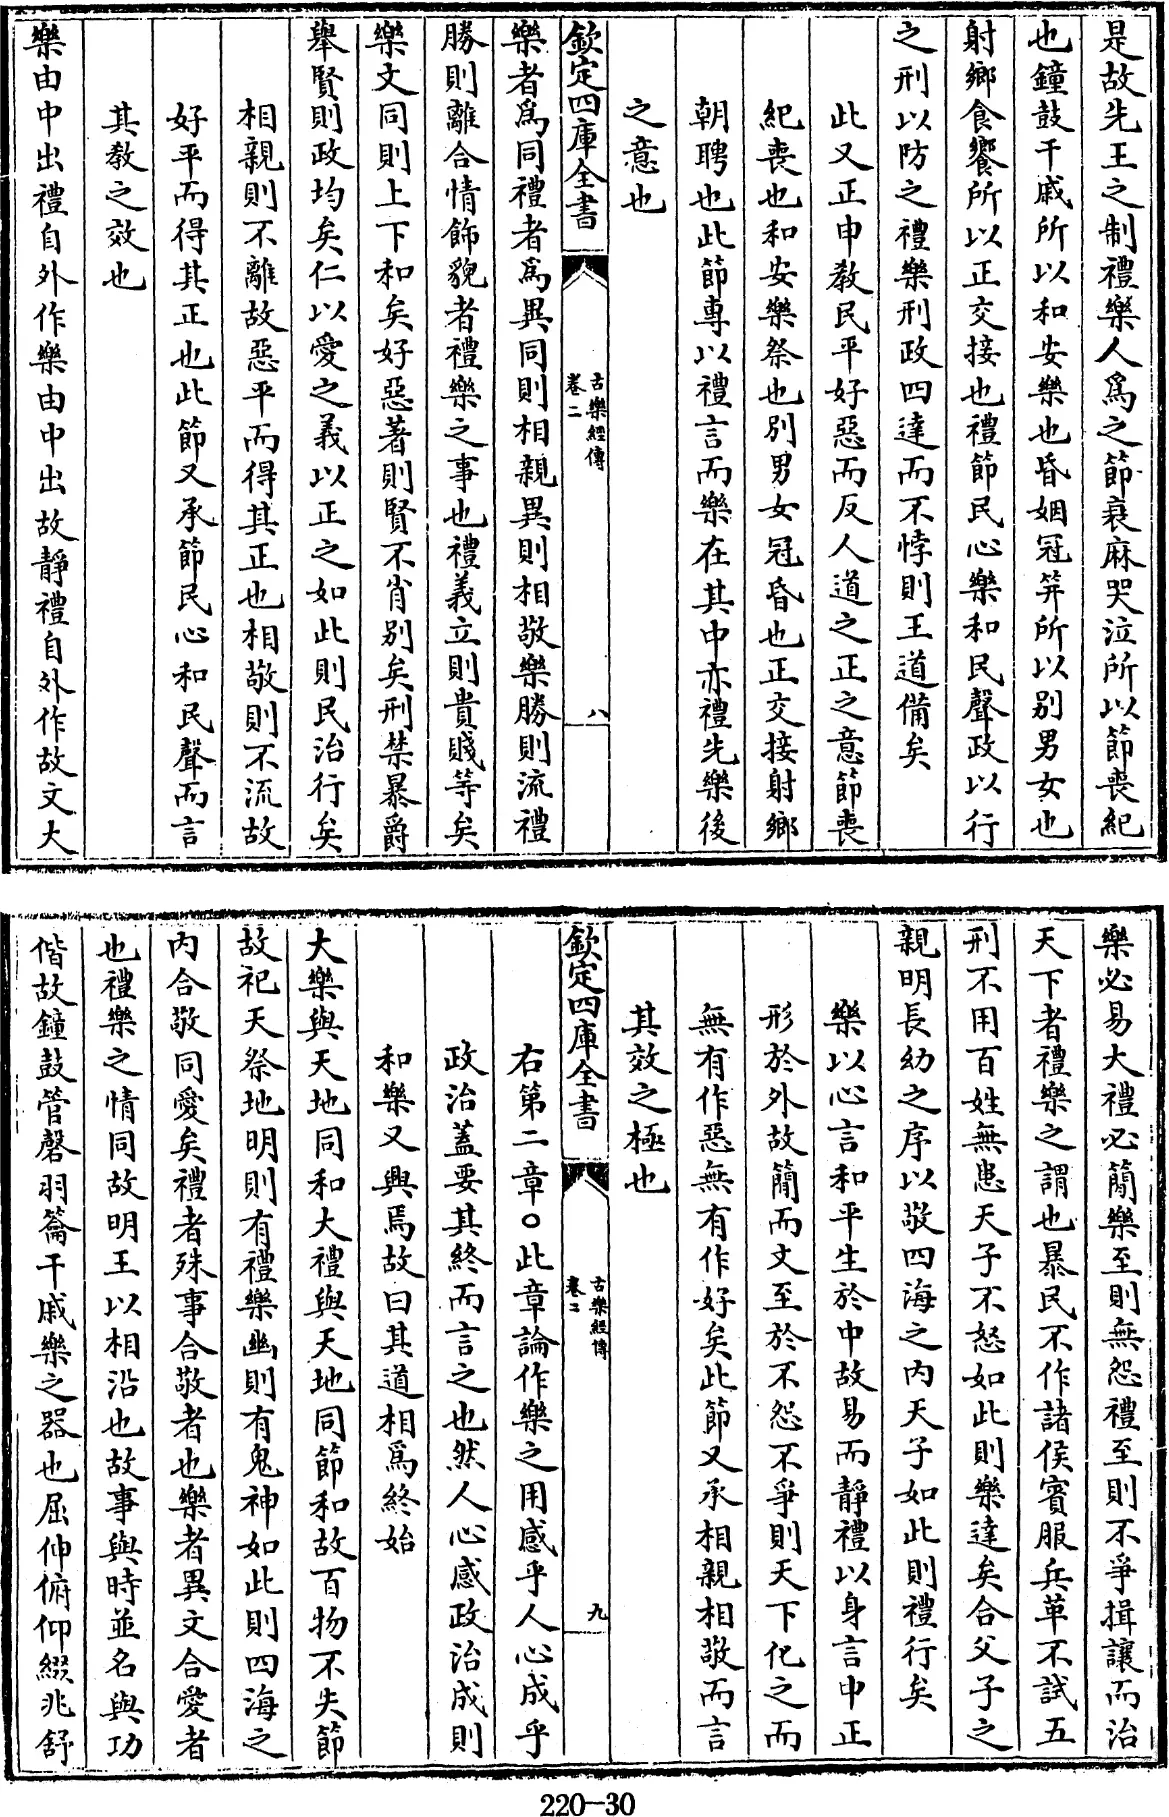 是故先王之制禮樂人爲之節衰麻哭泣所以節喪紀
也鐘鼓干戚所以和安樂也昏姻冠筓所以别男女也
射鄉食饗所以正交接也禮節民心樂和民聲政以行
之刑以防之禮樂刑政四達而不悖則王道備矣
此又正申教民平好惡而反人道之正之意節喪
紀喪也和安樂祭也别男女冠昏也正交接射鄉
朝聘也此節專以禮言而樂在其中亦禮先樂後
之意也
欽定四庫全書
古樂經傳
卷二
八
樂者爲同禮者爲異同則相親異則相敬樂勝則流禮
勝則離合情飾貌者禮樂之事也禮義立則貴賤等矣
樂文同則上下和矣好惡著則賢不肖别矣刑禁暴爵
舉賢則政均矣仁以愛之義以正之如此則民治行矣
相親則不離故惡平而得其正也相敬則不流故
好平而得其正也此節又承節民心和民聲而言
其教之效也
樂由中出禮自外作樂由中出故靜禮自外作故文大
樂必易大禮必簡樂至則無怨禮至則不爭揖讓而治
天下者禮樂之謂也暴民不作諸侯賓服兵革不試五
刑不用百姓無患天子不怒如此則樂達矣合父子之
親明長幼之序以敬四海之内天子如此則禮行矣
樂以心言和平生於中故易而靜禮以身言中正
形於外故簡而文至於不怨不爭則天下化之而
無有作惡無有作好矣此節又承相親相敬而言
其效之極也
欽定四庫全書
古樂經傳
卷二
九
右第二章○此章論作樂之用感乎人心成乎
政治蓋要其終而言之也然人心感政治成則
和樂又興焉故曰其道相爲終始
大樂與天地同和大禮與天地同節和故百物不失節
故祀天祭地明則有禮樂幽則有鬼神如此則四海之
内合敬同愛矣禮者殊事合敬者也樂者異文合愛者
也禮樂之情同故明王以相沿也故事與時並名與功
偕故鐘鼓管磬羽籥干戚樂之器也屈伸俯仰綴兆舒
220-30